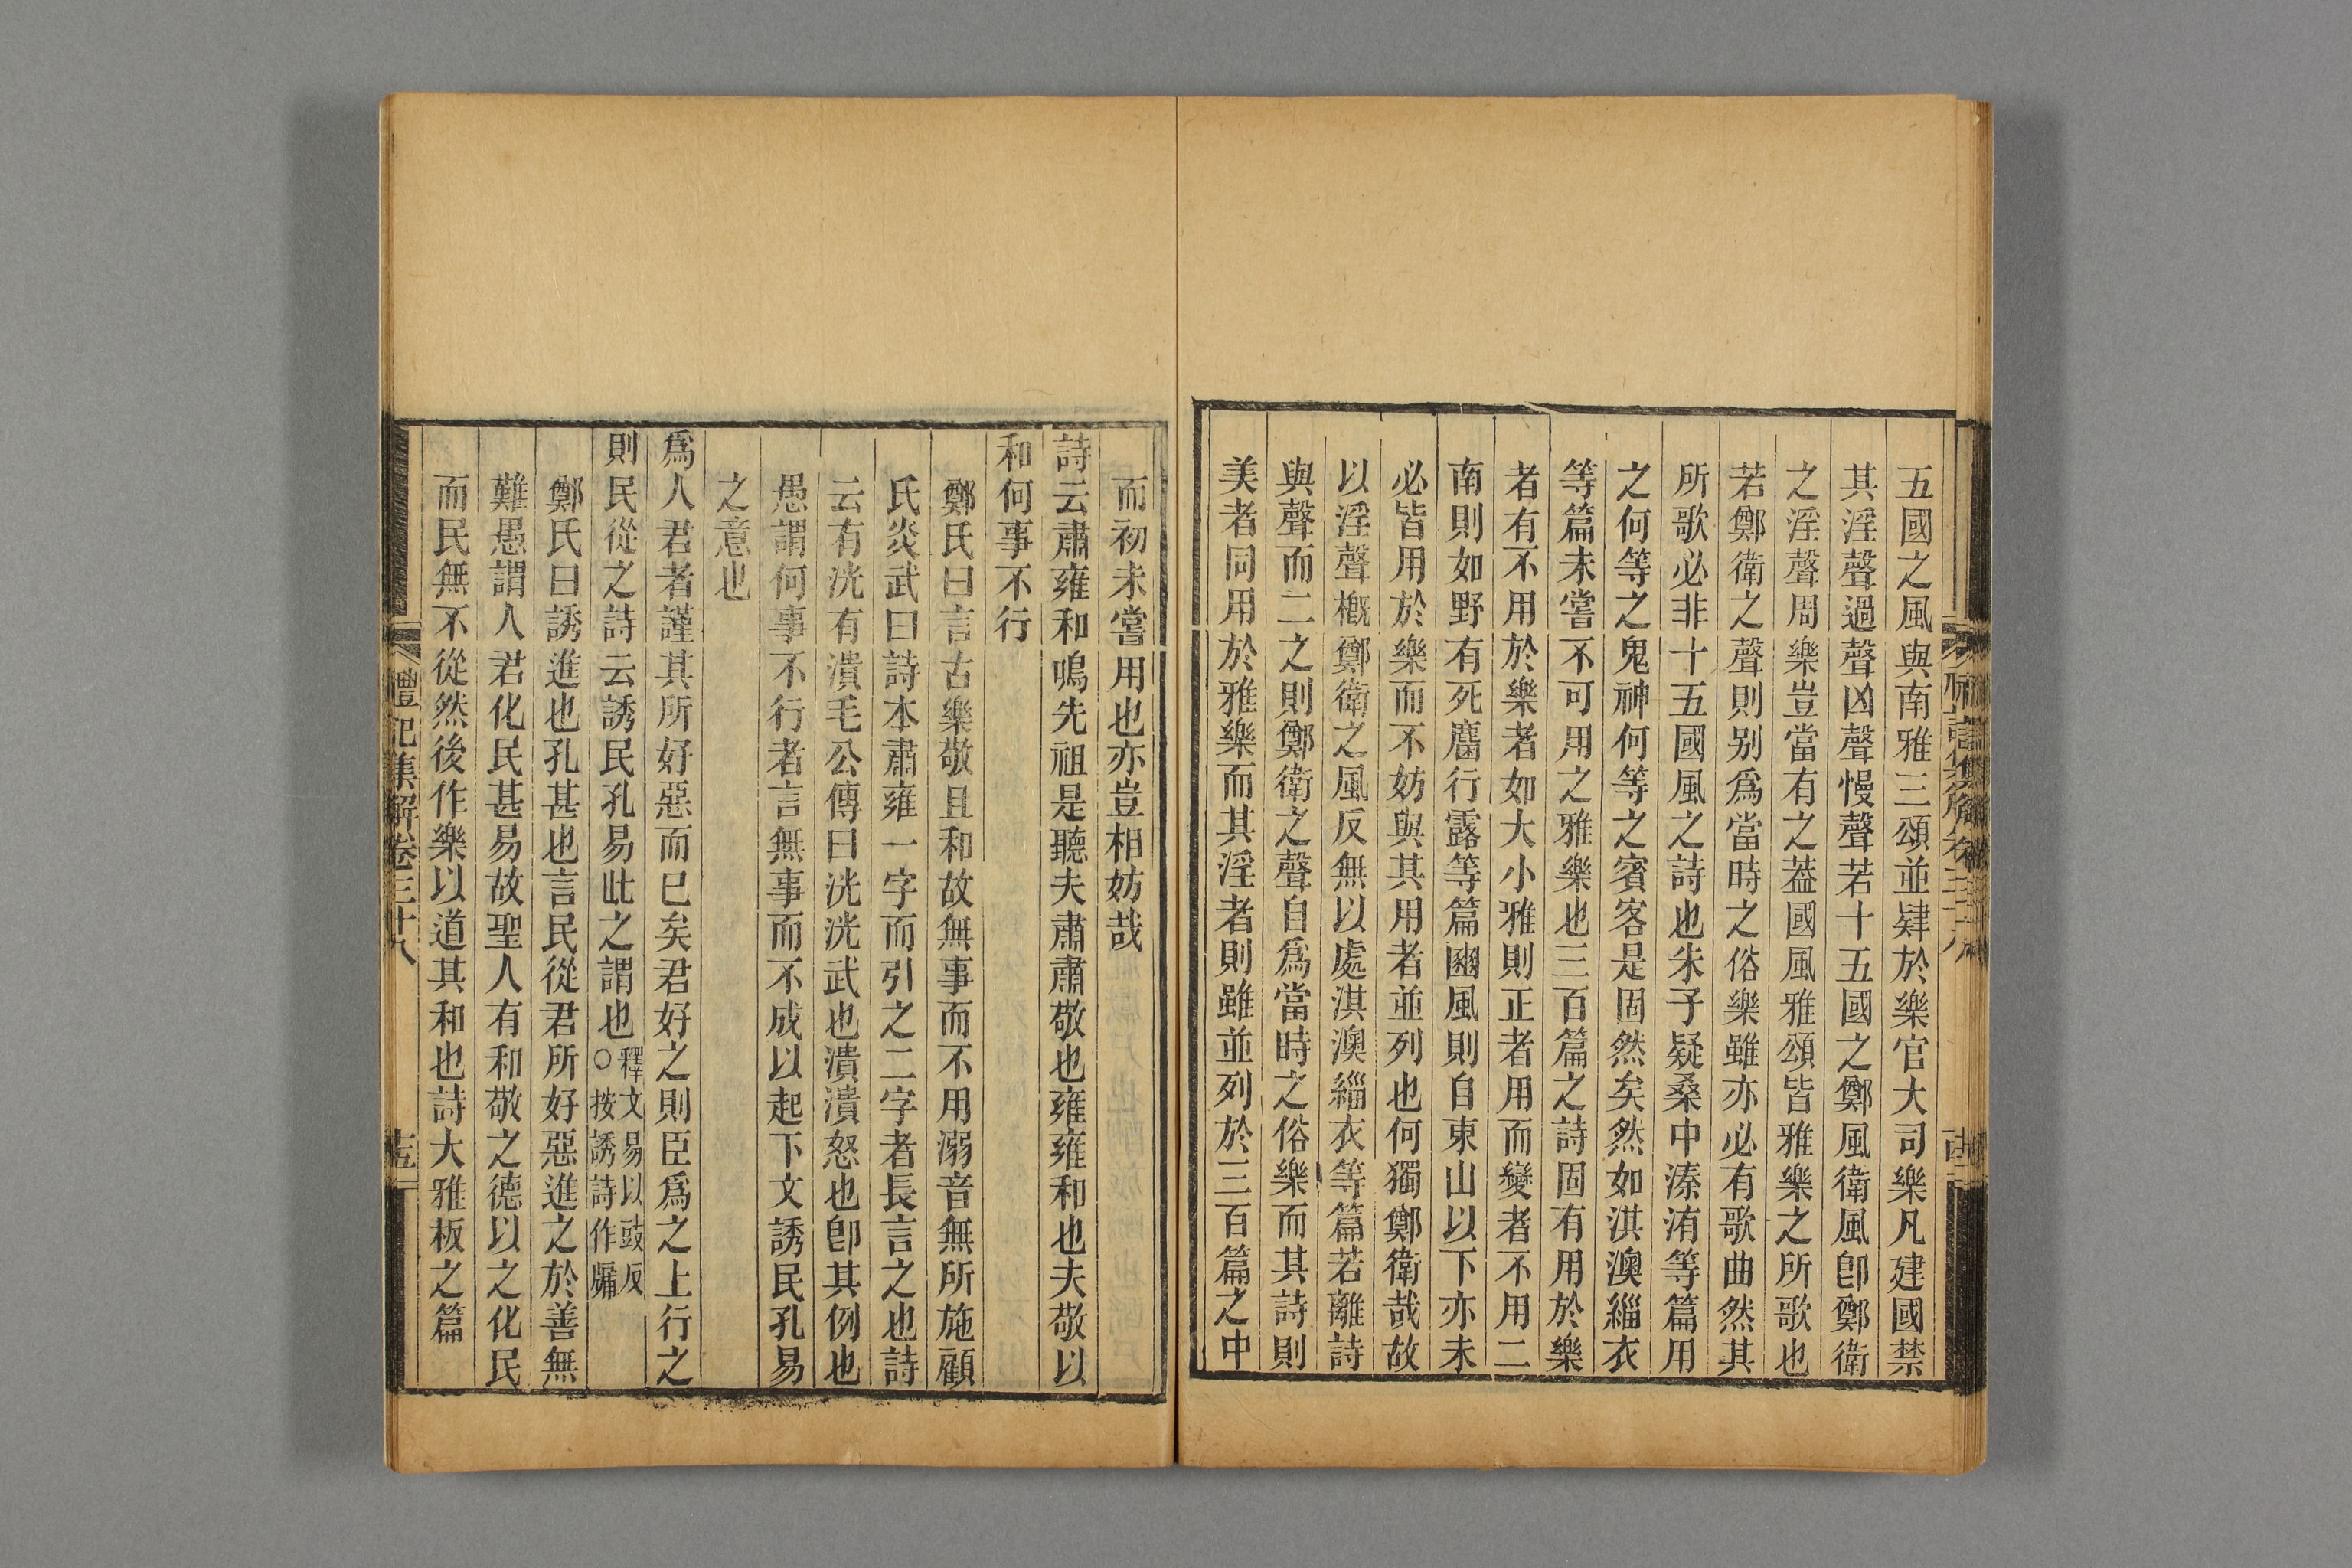 五國之風與南雅三頌並肄於樂官大司樂凡建國禁
其淫聲過聲凶聲慢聲若十五國之鄭風衛風卽鄭衛
之淫聲周樂豈當有之葢國風雅頌皆雅樂之所歌也
若鄭衛之聲則别爲當時之俗樂雖亦必有歌曲然其
所歌必非十五國風之詩也朱子疑桑中溱洧等篇用
之何等之鬼神何等之賓客是固然矣然如淇澳緇衣
等篇未嘗不可用之雅樂也三百篇之詩固有用於樂
者有不用於樂者如大小雅則正者用而變者不用二
南則如野有死麕行露等篇豳風則自東山以下亦未
必皆用於樂而不妨與其用者並列也何獨鄭衛哉故
以淫聲槪鄭衛之風反無以處淇澳緇衣等篇若離詩
與聲而二之則鄭衛之聲自爲當時之俗樂而其詩則
美者同用於雅樂而其淫者則雖並列於三百篇之中
而初未嘗用也亦豈相妨哉
詩云肅雍和鳴先祖是聽夫肅肅敬也雍雍和也夫敬以
和何事不行
鄭氏曰言古樂敬且和故無事而不用溺音無所施顧
氏炎武曰詩本肅雍一字而引之二字者長言之也詩
云有洸有潰毛公傳曰洸洸武也潰潰怒也卽其例也
愚謂何事不行者言無事而不成以起下文誘民孔易
之意也
爲人君者謹其所好惡而已矣君好之則臣爲之上行之
則民從之詩云誘民孔易此之謂也釋文易以豉反
○按誘詩作牖
鄭氏曰誘進也孔甚也言民從君所好惡進之於善無
難愚謂人君化民甚易故聖人有和敬之德以之化民
而民無不從然後作樂以道其和也詩大雅板之篇
禮記集解卷三十八
十五